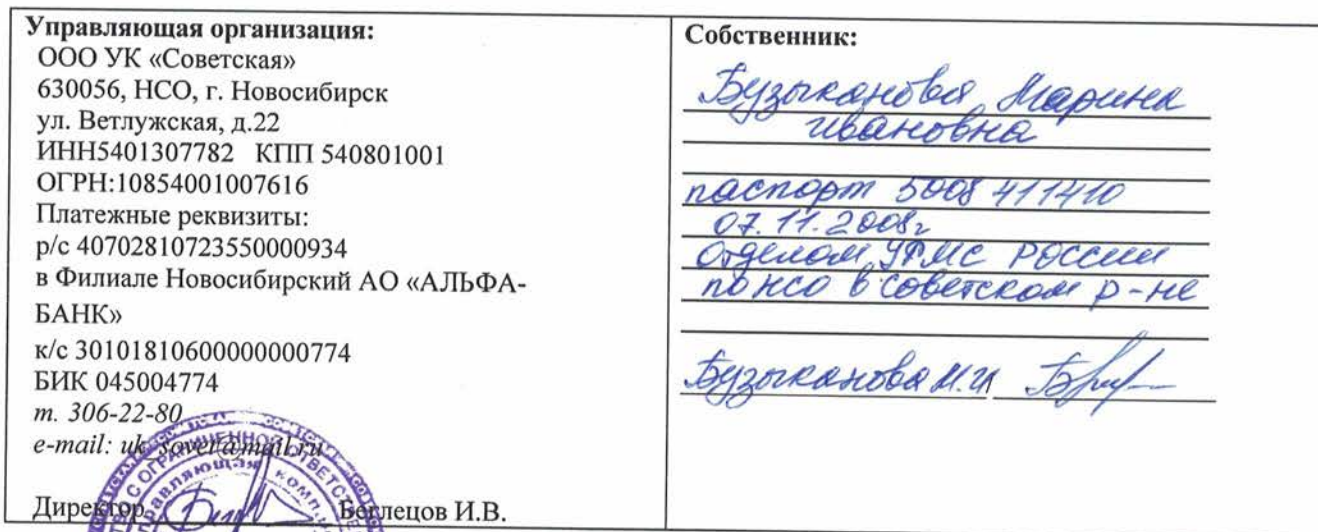 Управляющая организация:
ООО УК «Советская»
630056, НСО, г. Новосибирск
ул. Ветлужская, д.22
ИНН5401307782 КПП 540801001
ОГРН:10854001007616
Платежные реквизиты:
р/с 40702810723550000934
в Филиале Новосибирский АО «АЛЬФА-
БАНК»
к/с 30101810600000000774
БИК 045004774
т. 306-22-80
e-mail: uk_sovet@mail.ru
Директор Беглецов И.В.
Собственник:
Бузыканова Марина
Ивановна
паспорт 5008 411410
07.11.2008г
Отделом УФМС России
по НСО в Советском р-не
Бузыканова М.И